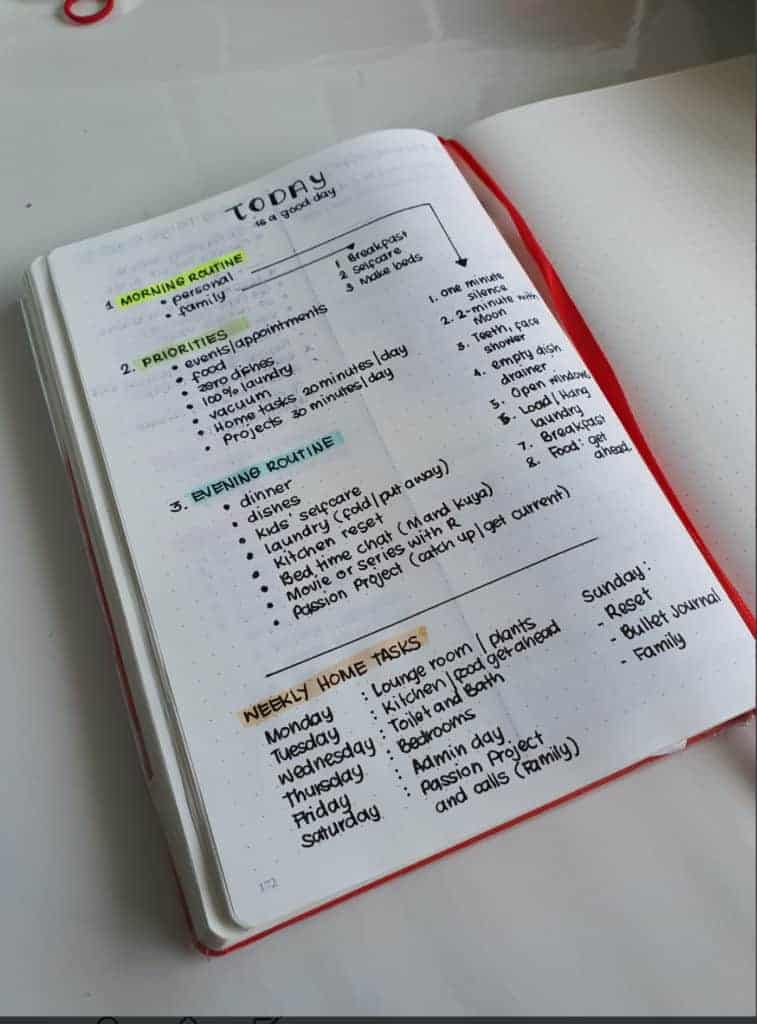 TODAY
is a good day
1 MORNING ROUTINE
• personal
• family
1 Breakfast
2 selfcare
3 Make beds
1. one minute
silence
2. 2-minute with
Moon
3. Teeth, face
shower
4. empty dish
drainer
5. Open window
6. Load/Hang
laundry
7. Breakfast
8. Food: get
ahead
2. PRIORITIES
• events/appointments
• food
• zero dishes
• 100% laundry
• vacuum
• Home tasks 20 minutes/day
• Projects 30 minutes/day
3. EVENING ROUTINE
• dinner
• dishes
• kids' selfcare
• laundry (fold/put away)
• Kitchen reset
• Bed time chat (M and Kuya)
• Movie or series with R
• Passion Project (catch up/get current)
WEEKLY HOME TASKS
Monday : Lounge room / plants
Tuesday : Kitchen/food get ahead
Wednesday : Toilet and Bath
Thursday : Bedrooms
Friday : Admin day
Saturday : Passion Project
and calls (Family)
Sunday:
- Reset
- Bullet Journal
- Family
172